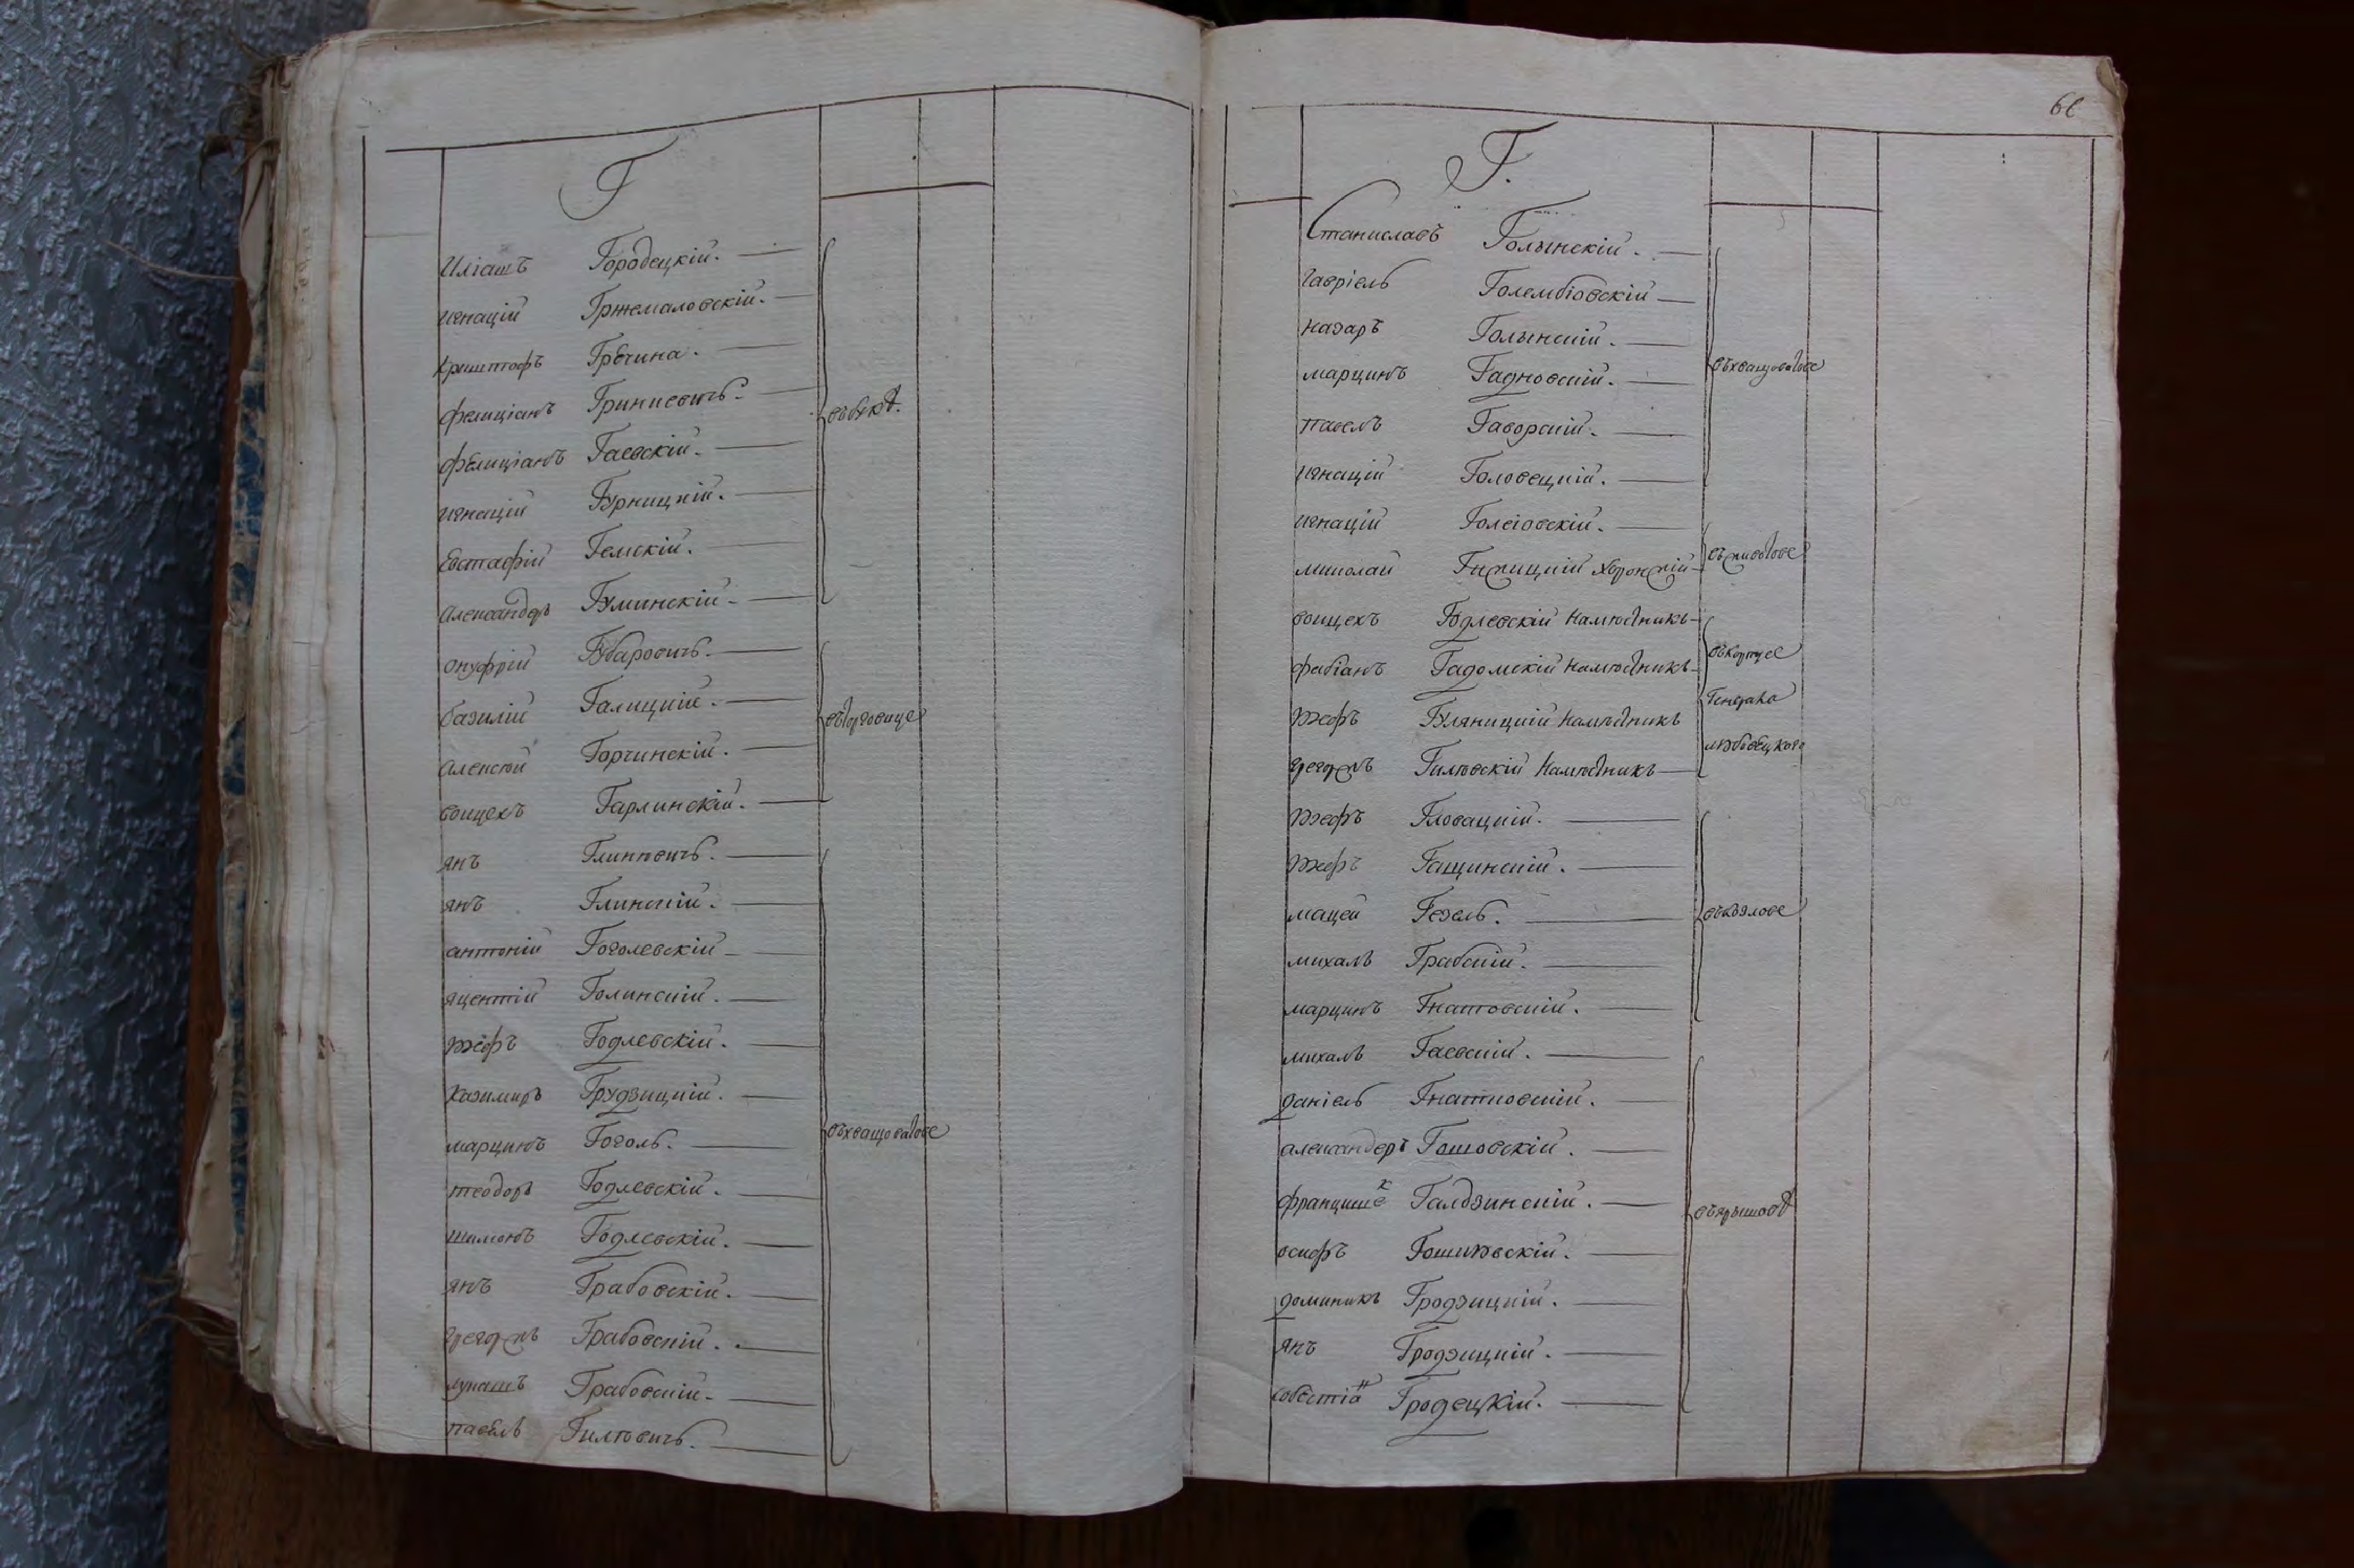 Г
Иліашъ Городецкій.
игнацій Гржемаловскій.
криштофъ Гречина.
фелиціанъ Гриневичь.
фелиціанъ Гаевскій.
игнацій Гурницкій.
Евстафій Гемскій.
Александеръ Гуминскій
въ букѣ.
онуфрій Губаровичь.
базилій Галицкій.
алексѣй Горчинскій.
воицехъ Гарлинскій.
въ торговице
янъ Глинковичь.
янъ Глинскій.
антоній Гоголевскій
яцентій Голинскій.
юзефъ Годлевскій.
казимиръ Грудзицкій.
марцинъ Гоголь.
теодоръ Годлевскій.
шимонъ Годлевскій.
янъ Грабовскій.
грегоръ Грабовскій.
лукашъ Грабовскій.
павелъ Гилѣвичь.
въ хващоватое
66
Г.
Станиславъ Голынскій.
гавріель Голембіовскій
назаръ Голынскій.
марцинъ Гадновскій.
павелъ Гаворскій.
игнацій Головецкій.
въ хващоватое
игнацій Голеіовскій.
миколай хоронжій
воицехъ Годлевскій намѣстникъ
фабіанъ Гадомскій намѣстникъ
юзефъ Гуляницкій намѣстникъ
грегоръ Гилѣвскій намѣстникъ
въ корпусе
Генерала
любовецкого
юзефъ Гловацкій.
юзефъ Гащинскій.
мацей Гезель.
михалъ Грабскій.
марцинъ Гнатовскій.
михалъ Гаевскій.
даніель Гнатковскій.
александеръ Гошовскій.
францишекъ Галдзинскій.
осифъ Гошиковскій.
доминикъ Гродзицкій.
янъ Гродзицкій.
собестіан Гродецкій.